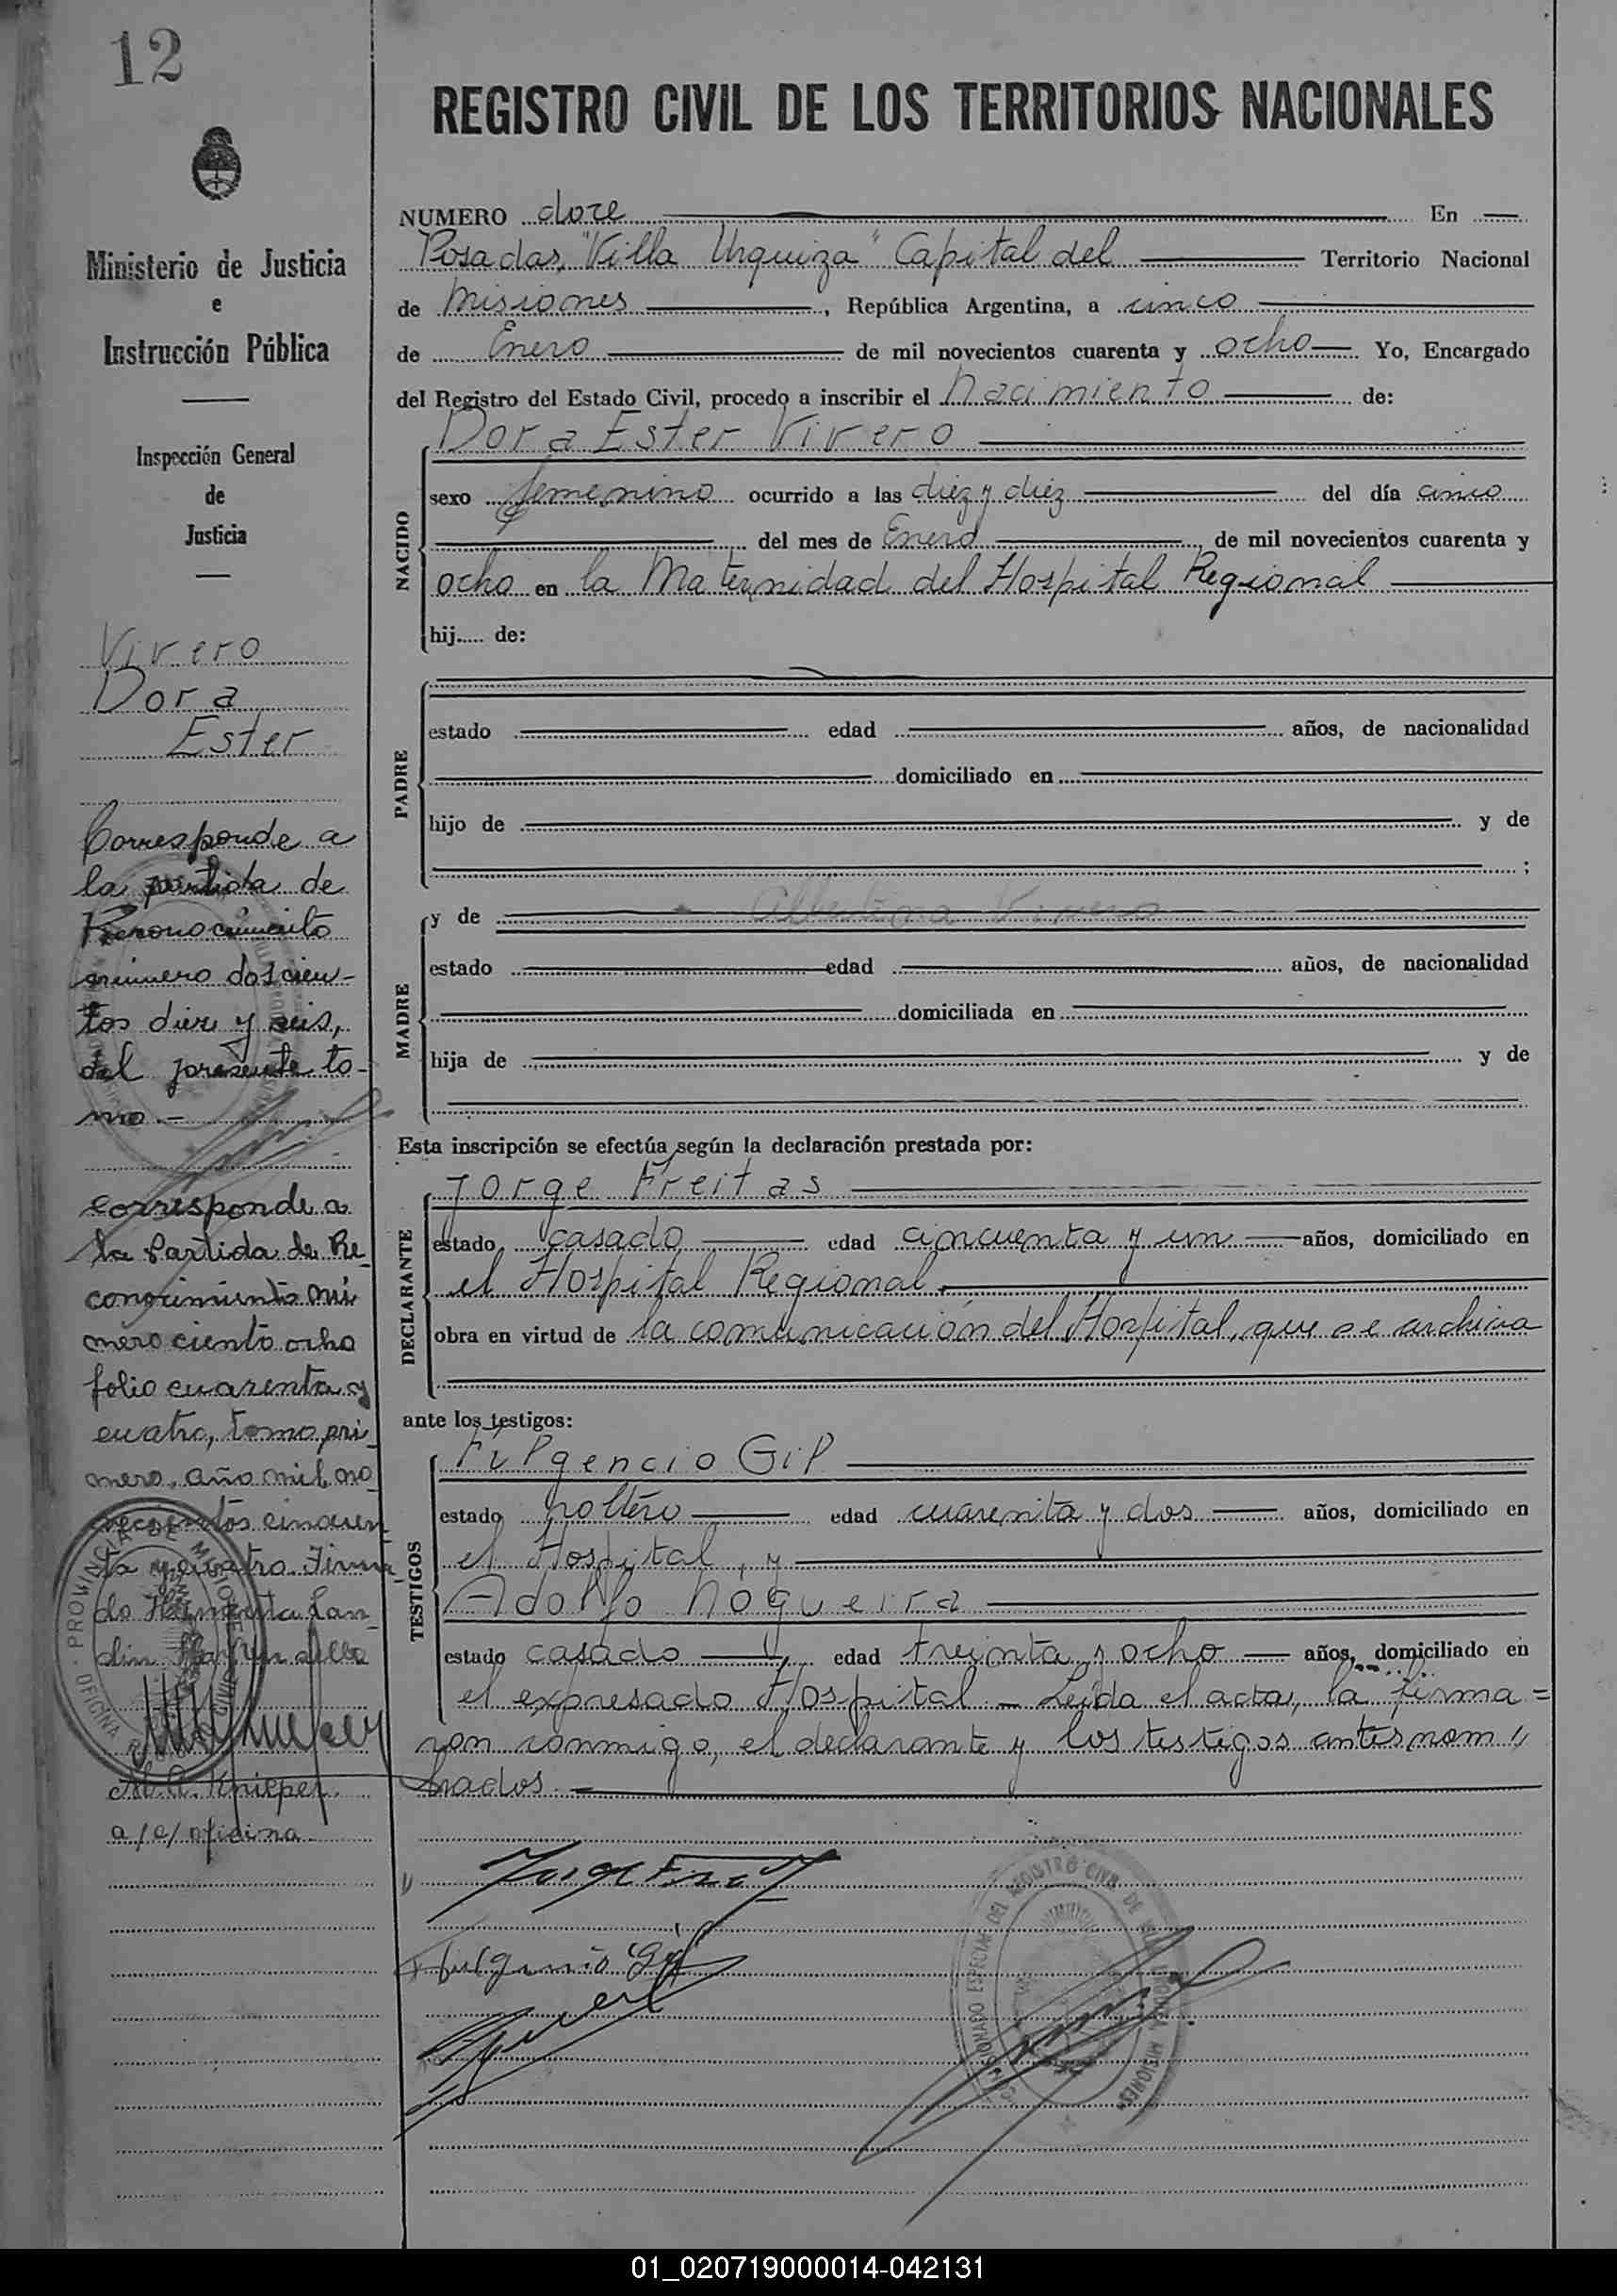 12
REGISTRO CIVIL DE LOS TERRITORIOS NACIONALES
Ministerio de Justicia
e
Instrucción Pública
Inspección General
de
Justicia
Vivero
Dora
Ester
Corresponde a
la partida de
Reconocimiento
número doscien-
tos diez y seis,
del presente to-
mo.-
corresponde a
la Partida de Re_
conocimiento nú
mero ciento ocho
folio cuarenta y
cuatro, tomo pri_
mero, año mil no_
vecientos cincuen_
ta y cuatro. Firma_
do
M. A. Knieper.
a/c/ oficina.
NUMERO doce En
Posadas, "Villa Urquiza" Capital del Territorio Nacional
de Misiones, República Argentina, a cinco
de Enero de mil novecientos cuarenta y ocho Yo, Encargado
del Registro del Estado Civil, procedo a inscribir el nacimiento de:
NACIDO
Dora Ester Vivero
sexo femenino ocurrido a las diez y diéz del día cinco
del mes de Enero, de mil novecientos cuarenta y
ocho en la Maternidad del Hospital Regional
hij..... de:
PADRE
estado edad años, de nacionalidad
domiciliado en
hijo de y de
;
MADRE
y de Albertina Vivero
estado edad años, de nacionalidad
domiciliada en
hija de y de
Esta inscripción se efectúa según la declaración prestada por:
DECLARANTE
Jorge Freitas
estado casado edad cincuenta y un años, domiciliado en
el Hospital Regional.
obra en virtud de la comunicación del Hospital, que se archiva
ante los testigos:
TESTIGOS
Fulgencio Gil
estado soltero edad cuarenta y dos años, domiciliado en
el Hospital, y
Adolfo Nogueira
estado casado, edad treinta y ocho años, domiciliado en
el expresado Hospital - Leída el acta, la firma=
ron conmigo, el declarante y los testigos antes nom"
brados.
Fulgencio Gil
PROVINCIA DE MISIONES
OFICINA
COMISIONADO ESPECIAL DEL REGISTRO CIVIL DE VILLA URQUIZA MISIONES
01_020719000014-042131